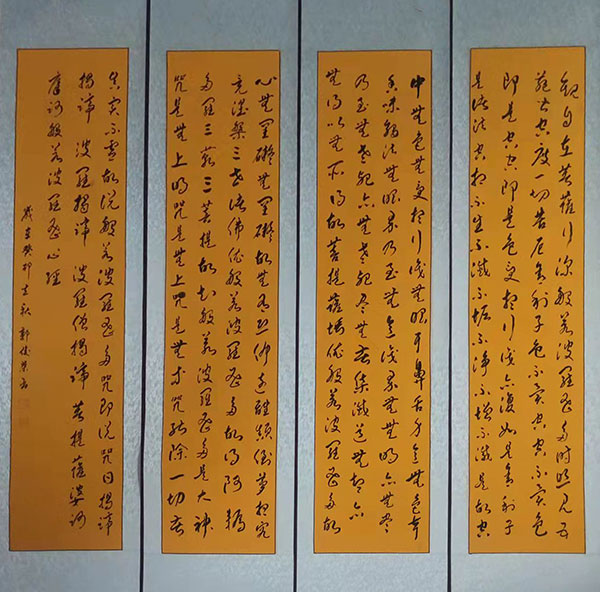 觀自在菩薩行深般若波羅蜜多時照見五
蘊皆空度一切苦厄舍利子色不異空空不異色
即是空空即是色受想行識亦復如是舍利子
是諸法空相不生不滅不垢不淨不增不減是故空
中無色無受想行識無眼耳鼻舌身意無色聲
香味觸法無眼界乃至無意識界無無明亦無盡
乃至無老死亦無老死盡無苦集滅道無智亦
無得以無所得故菩提薩埵依般若波羅蜜多故
心無罣礙無罣礙故無有恐怖遠離顛倒夢想究
竟涅槃三世諸佛依般若波羅蜜多故得阿耨
多羅三藐三菩提故知般若波羅蜜多是大神
咒是無上明咒是無上咒是無等咒能除一切苦
真實不虛故說般若波羅蜜多咒即說咒曰揭諦
揭諦 波羅揭諦 波羅僧揭諦 菩提薩婆訶
摩訶般若波羅蜜心經
歲在癸卯 秋 郭